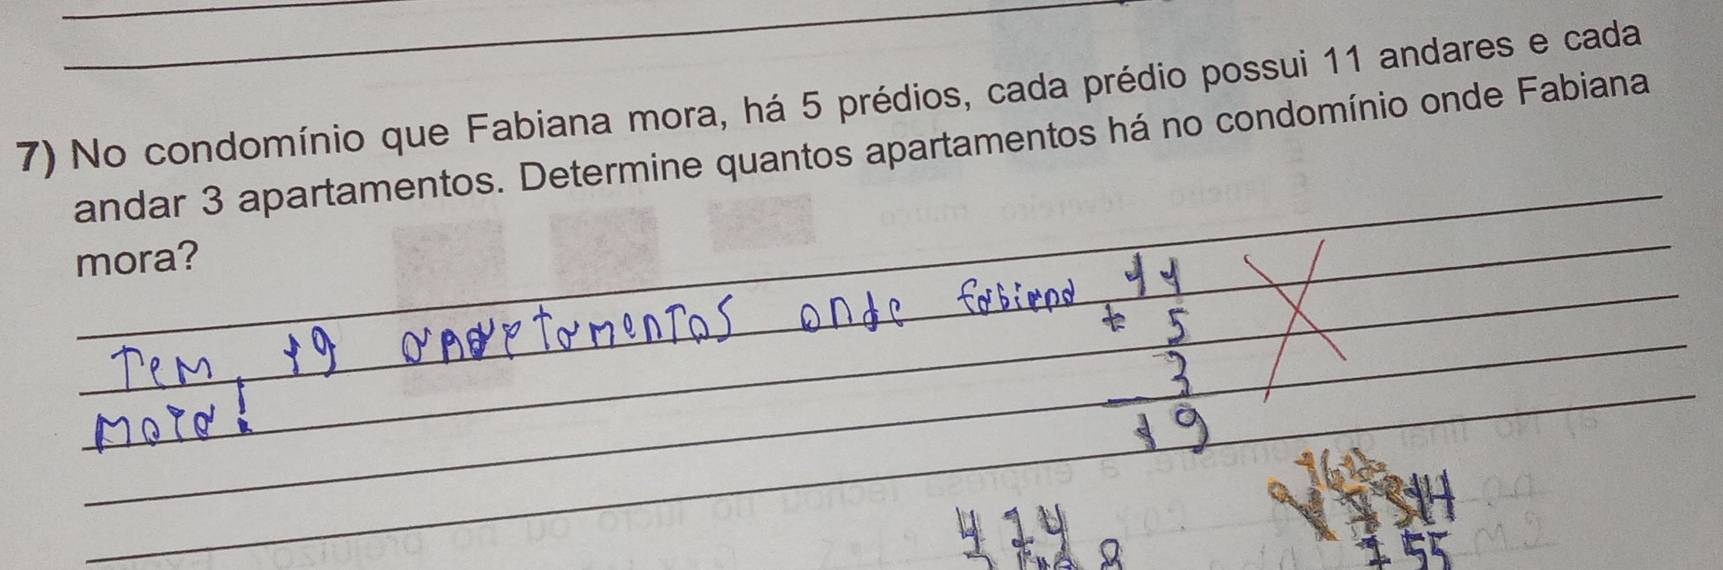 7) No condomínio que Fabiana mora, há 5 prédios, cada prédio possui 11 andares e cada
andar 3 apartamentos. Determine quantos apartamentos há no condomínio onde Fabiana
mora?
Tem 19 onde fabiana
mora!
11
+ 5
3
19
474
+ 55